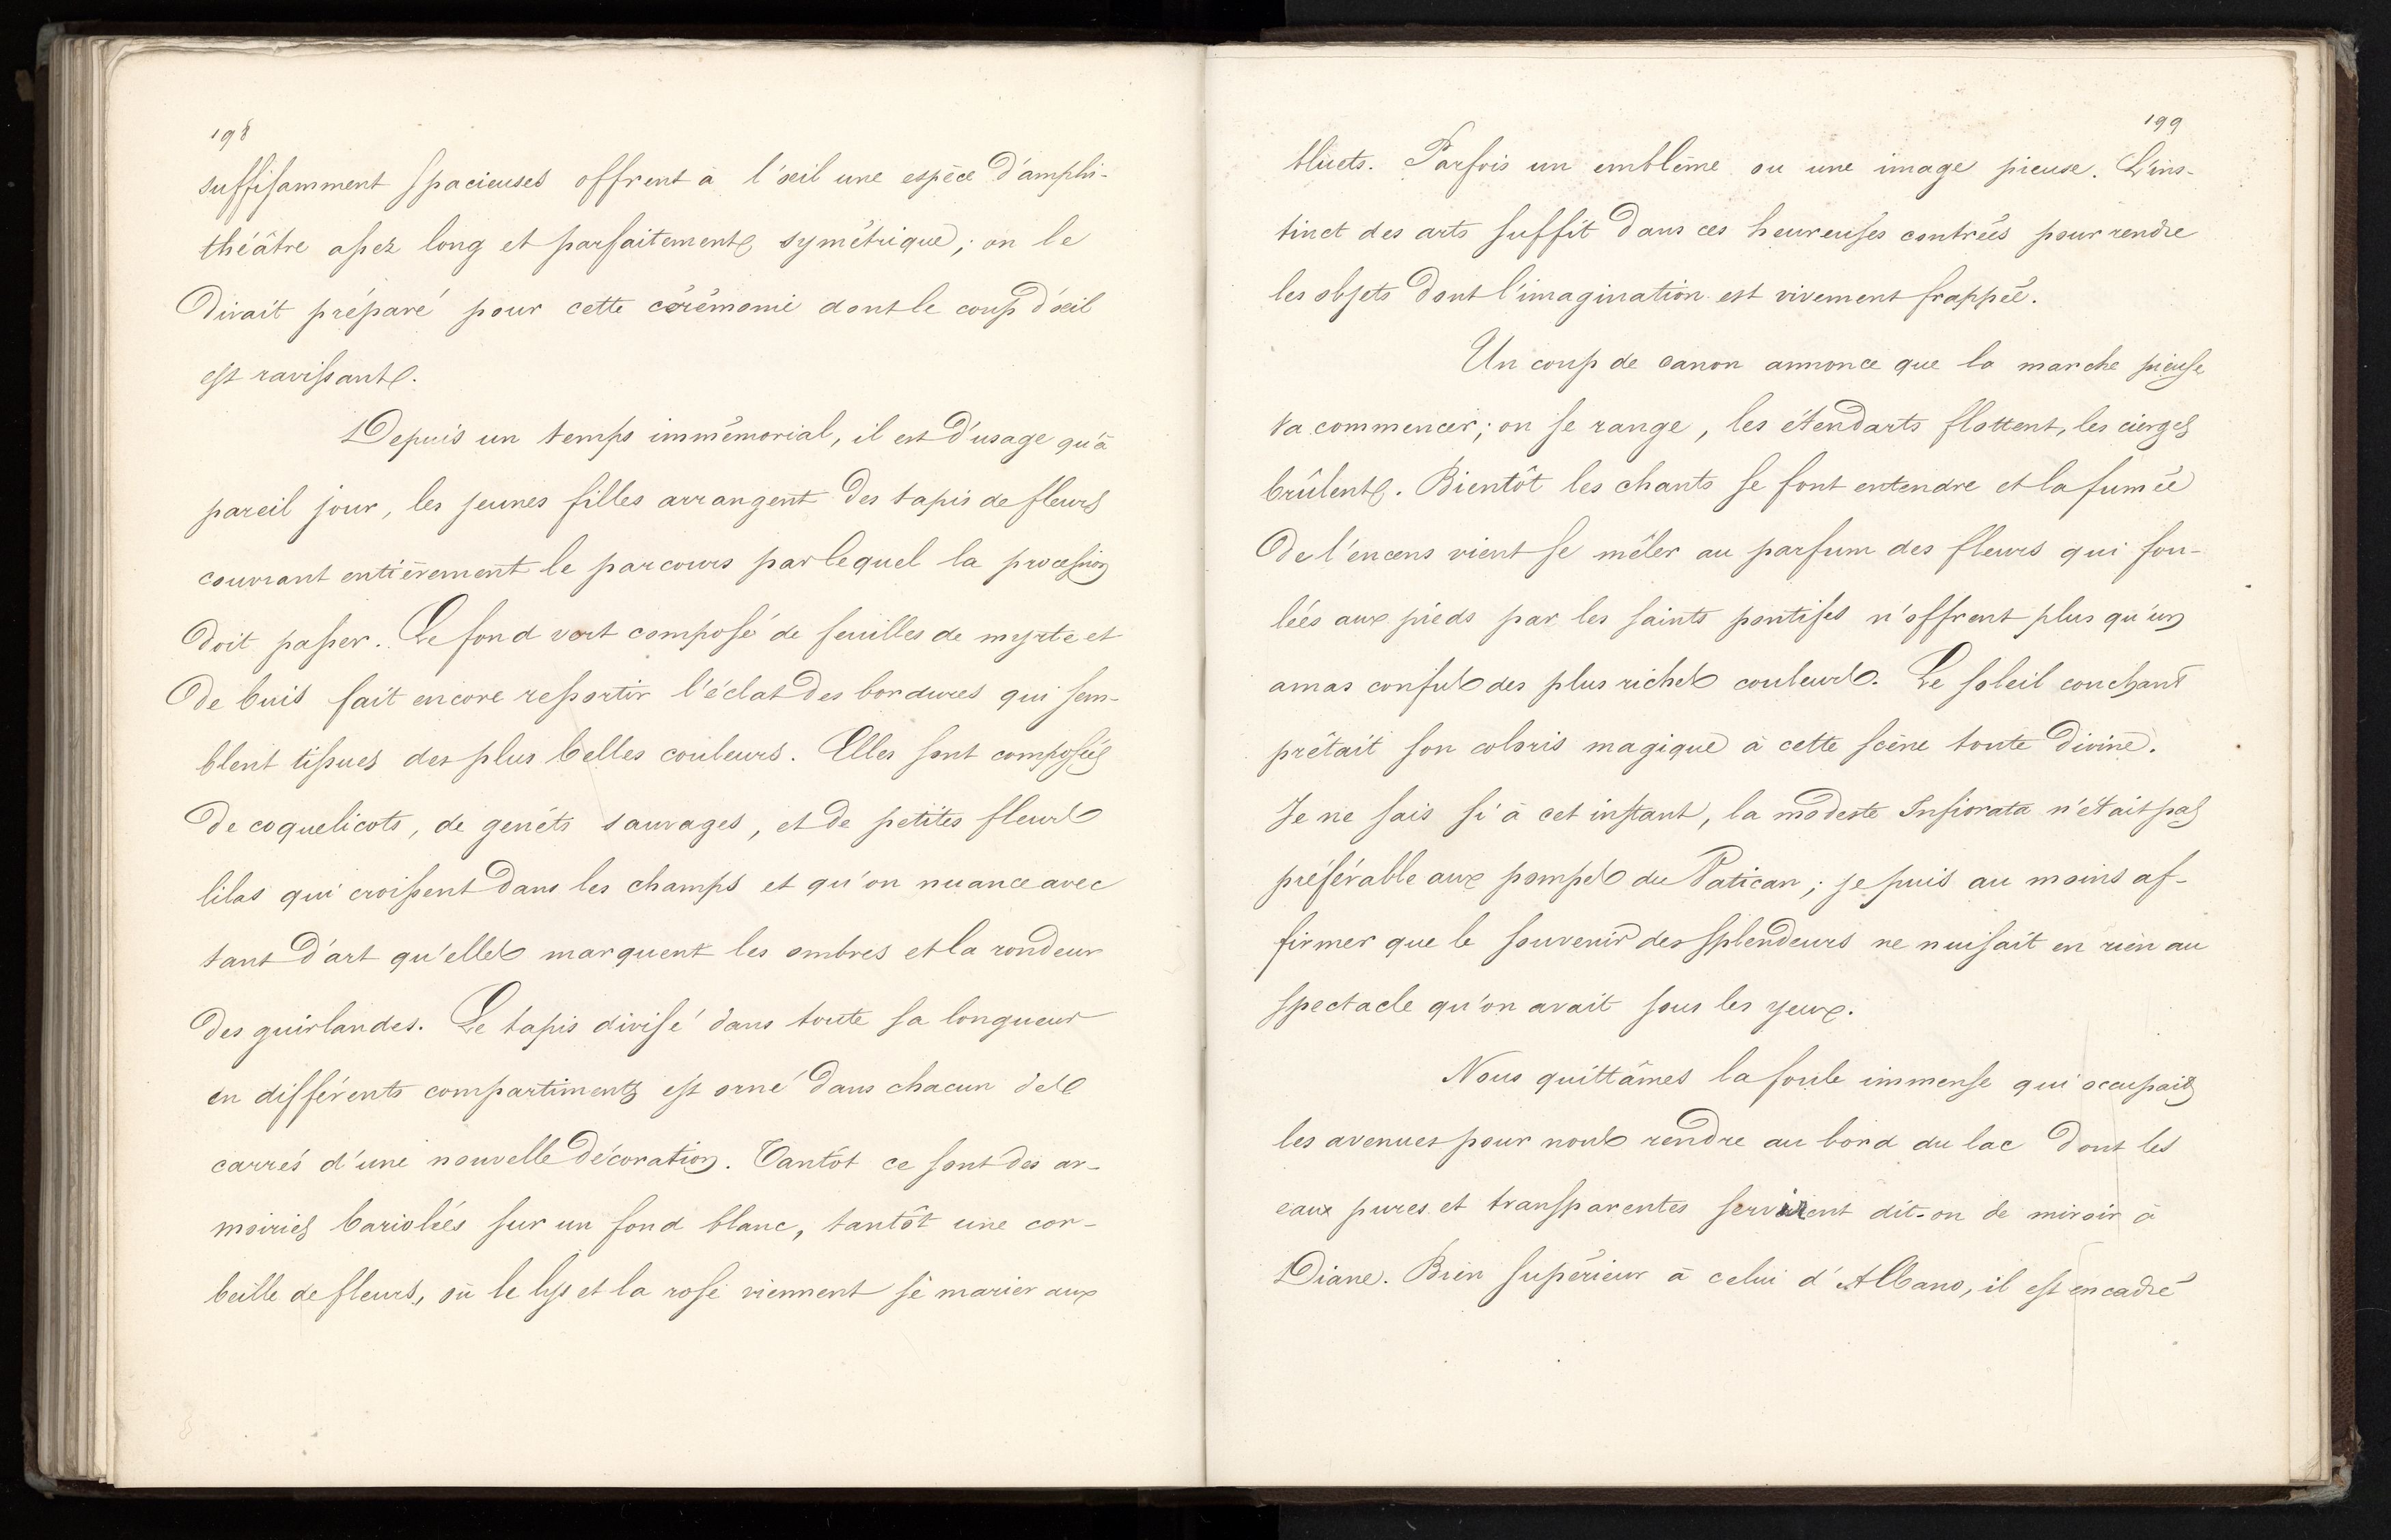 198
suffisamment spacieuses offrent à l'œil une espèce d'amphi-
théâtre assez long et parfaitement symétrique; on le
dirait préparé pour cette cérémonie dont le coup d'œil
est ravissant.
Depuis un temps immémorial, il est d'usage qu'à
pareil jour, les jeunes filles arrangent des tapis de fleurs
couvrant entièrement le parcours par lequel la procession
doit passer. Le fond vert composé de feuilles de myrte et
de buis fait encore ressortir l'éclat des bordures qui sem-
blent tissues des plus belles couleurs. Elles sont composées
de coquelicots, de genêts sauvages, et de petites fleurs
lilas qui croissent dans les champs et qu'on nuance avec
tant d'art qu'elles marquent les ombres et la rondeur
des guirlandes. Le tapis divisé dans toute sa longueur
en différents compartiments est orné dans chacun des
carrés d'une nouvelle décoration. Tantôt ce sont des ar-
moiries bariolées sur un fond blanc, tantôt une cor-
beille de fleurs, où le lys et la rose viennent se marier aux
199
bluets. Parfois un emblème ou une image pieuse. L'ins-
tinct des arts suffit dans ces heureuses contrées pour rendre
les objets dont l'imagination est vivement frappée.
Un coup de canon annonce que la marche pieuse
va commencer; on se range, les étendarts flottent, les cierges
brûlent. Bientôt les chants se font entendre et la fumée
de l'encens vient se mêler au parfum des fleurs qui fou-
lées aux pieds par les saints pontifes n'offrent plus qu'un
amas confus des plus riches couleurs. Le soleil couchant
prêtait son coloris magique à cette scène toute divine.
Je ne sais si à cet instant, la modeste Infiorata n'était pas
préférable aux pompes du Vatican; je puis au moins af-
firmer que le souvenir des splendeurs ne nuisait en rien au
spectacle qu'on avait sous les yeux.
Nous quittâmes la foule immense qui occupait
les avenues pour nous rendre au bord du lac dont les
eaux pures et transparentes servirent dit-on de miroir à
Diane. Bien supérieur à celui d'Albano, il est encadré